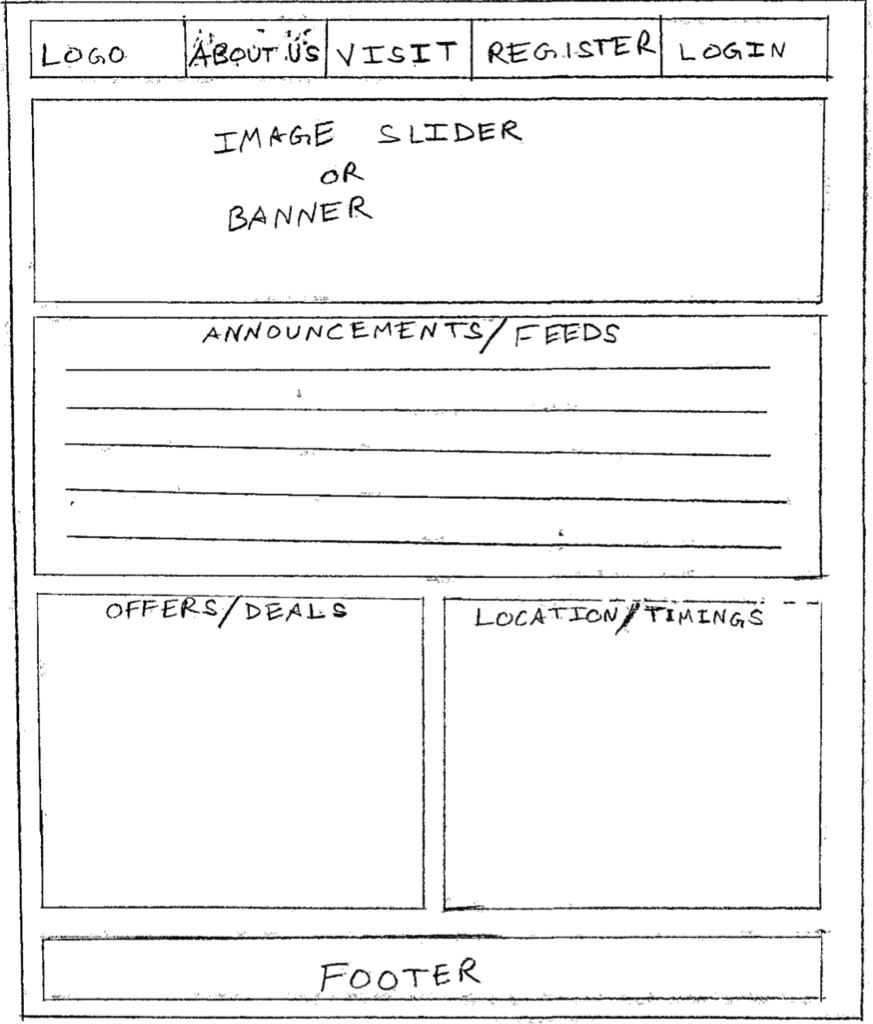 LOGO ABOUT US VISIT REGISTER LOGIN
IMAGE SLIDER
OR
BANNER
ANNOUNCEMENTS/FEEDS
OFFERS/DEALS
LOCATION/TIMINGS
FOOTER